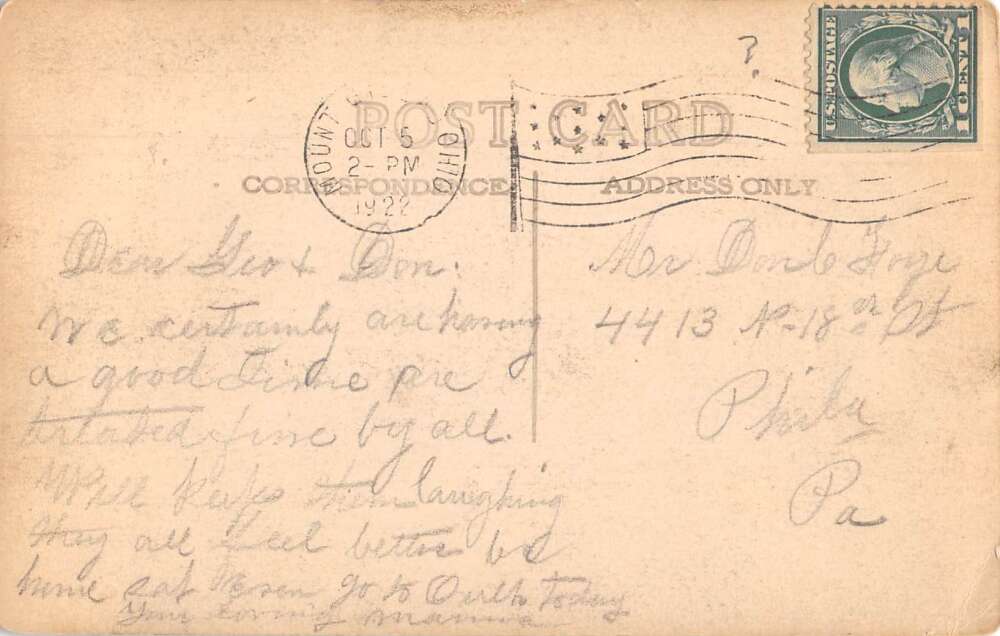 ?
U.S. POSTAGE
1 CENT 1
POST CARD
MOUNT OHIO
OCT 5
2- PM
1922
CORRESPONDENCE
ADDRESS ONLY
Dear Geo & Don.
We certainly are having
a good time are
treated fine by all.
Will keeps them laughing
they all feel better be
home Sat go to today
Your loving mamma
Mr Don
4413 No-18th St
Phila
Pa